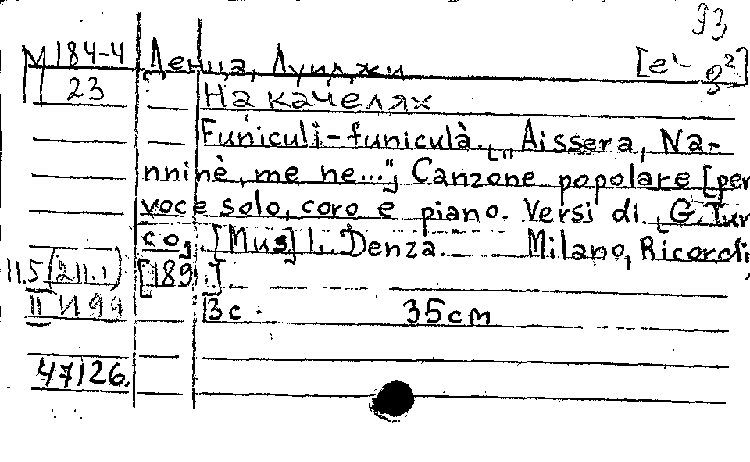 93
М 184-4 Денца, Луиджи [e'- g²]
23 На качелях
Funiculì-funiculà. [„Aissera, Na-
nninè, me ne..."; Canzone popolare [per
voce solo, coro e piano. Versi di [G. Tur
co, [Mus] L. Denza. Milano, Ricordi,
11.5(211.1) [189 .]
II И 99 3 с. 35 cm
47126